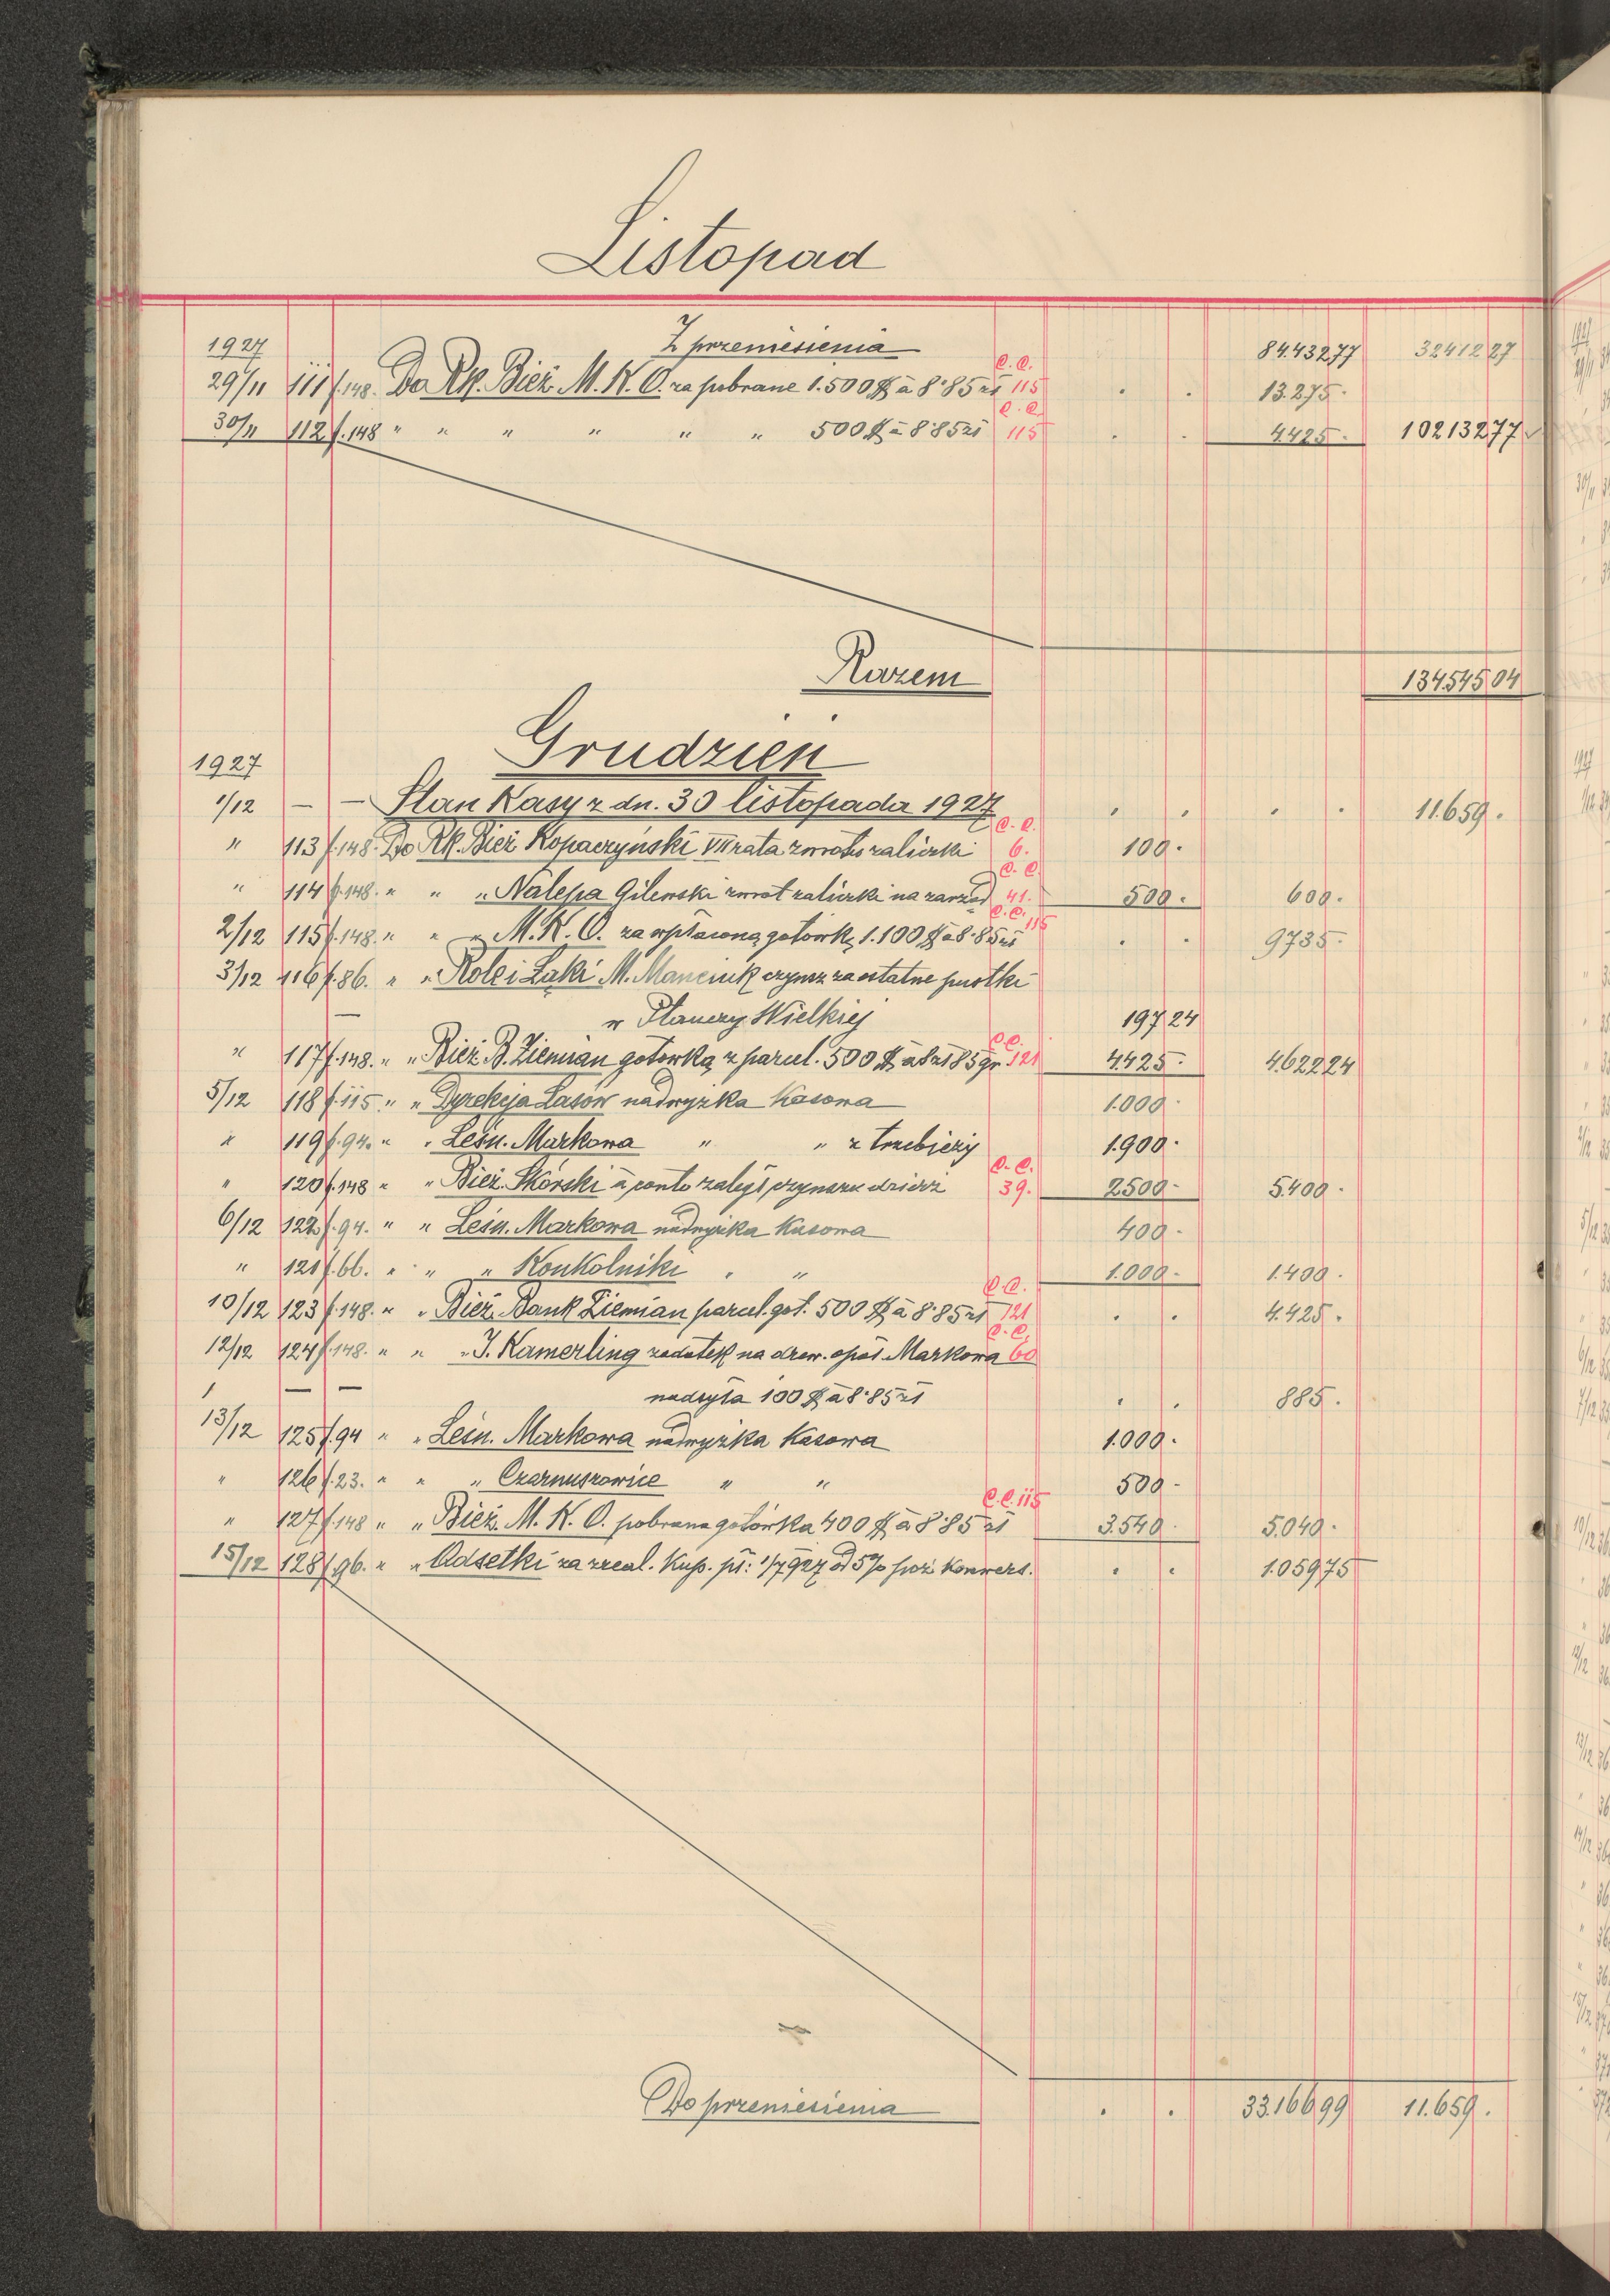 Listopad
1927 Z przeniesienia 84.432 77 32412 27
29/11 111 f.148. Do Rk. Bież. M. K. O. za pobrane 1.500 $ à 8·85 zł C.C. 115 . . 13.275 ·
30/11 112 f.148 " " " " " " 500 $ à 8·85 zł C.C. 115 . . 4.425 · 102132 77
Razem 134.545 04
Grudzień
1927
1/12 — — Stan Kasy z dn. 30 listopada 1927 . . . . 11.659 .
" 113 f.148. Do Rk. Bież Kopaczyński VII rata zwrotu zaliczki C.C. 6. 100 ·
" 114 f.148. " " " Nalepa Gilewski zwrot zaliczki na zarząd C.C. 41. 500 · 600 ·
2/12 115 f.148. " " " M. K. O. za wpłaconą gotówkę 1.100 $ à 8·85 zł C.C. 115 . . 9735 ·
3/12 116 f.86. " " Role i Łąki M. Manciuk czynsz za ostatne pustki
— w Płauczy Wielkiej 197 24
" 117 f.148. " " Bież. B. Ziemian gotówką z parcel. 500 $ à 8 zł 85 gr C.C. 121 4.425 · 4.622 24
5/12 118 f.115 " " Dyrekcja Lasów nadwyżka Kasowa 1.000 ·
" 119 f.94. " " Leśn. Markowa " " z trzebieży 1.900 ·
" 120 f.148 " " Bież. Skórski à conto zaległ czynszu dzierż C.C. 39. 2500 · 5.400 ·
6/12 122 f.94. " " Leśn. Markowa nadwyżka Kasowa 400 ·
" 121 f.66. " " " Konkolniki " " 1.000 · 1.400 ·
10/12 123 f.148. " " Bież. Bank Ziemian parcel. got. 500 $ à 8·85 zł C.C. 121 . . 4.425 .
12/12 124 f.148. " " " J. Kamerling zadatek na drzew. opał Markowa C.C. 60
— — nadsyła 100 $ à 8·85 zł . . 885 .
13/12 125 f.94 " " Leśn. Markowa nadwyżka Kasowa 1.000 ·
" 126 f.23. " " " Czarnuszowice " " 500 ·
" 127 f.148 " " Bież. M. K. O. pobrana gotówka 400 $ à 8·85 zł C.C. 115 3.540 · 5.040 ·
15/12 128 f.96. " " Odsetki za zreal. Kup. pł: 1/7 927 od 5% poż. Konwers. . . 1.059 75
Do przeniesienia . . 33.166 99 11.659 .